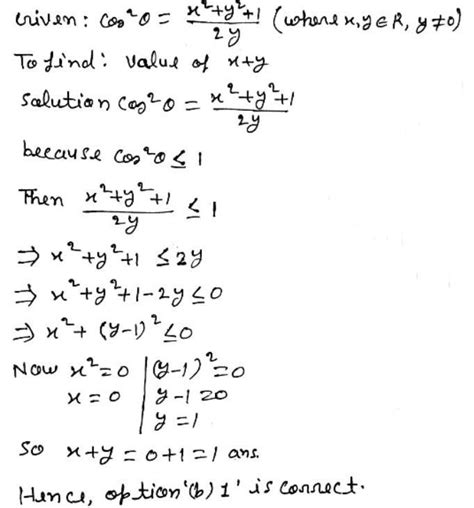 Given: cos²θ = x²+y²+1 / 2y (where x,y ∈ R, y≠0)
To find: value of x+y
Solution cos²θ = x²+y²+1 / 2y
because cos²θ ≤ 1
Then x²+y²+1 / 2y ≤ 1
⇒ x²+y²+1 ≤ 2y
⇒ x²+y²+1-2y ≤ 0
⇒ x²+ (y-1)² ≤ 0
Now x²=0 | (y-1)²=0
x=0 | y-1=0
| y=1
So x+y = 0+1 = 1 ans.
Hence, option '(b) 1' is correct.